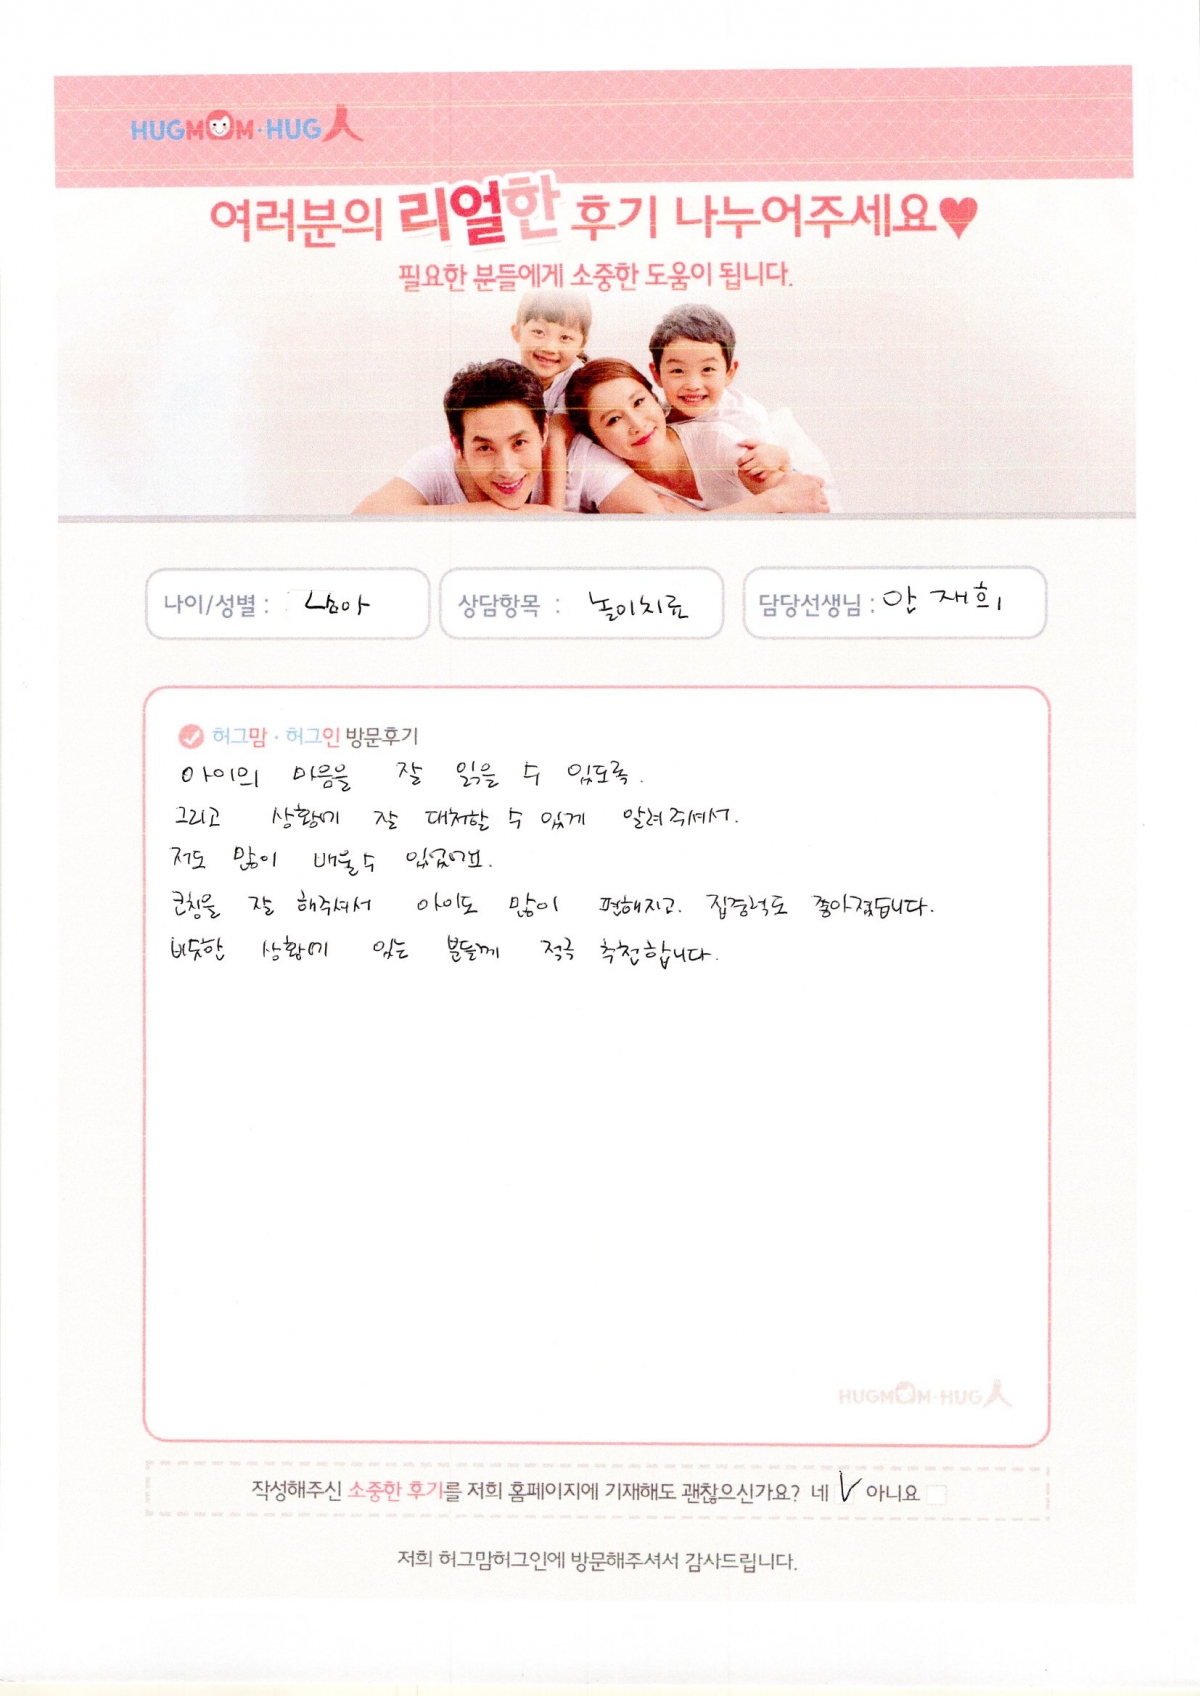 HUGMOM·HUG人
여러분의 리얼한 후기 나누어주세요♥
필요한 분들에게 소중한 도움이 됩니다.
나이/성별 : 남아 상담항목 : 놀이치료 담당선생님 : 안 재희
허그맘·허그인 방문후기
아이의 마음을 잘 읽을 수 있도록.
그리고 상황에 잘 대처할 수 있게 알려주셔서.
저도 많이 배울수 있었어요.
코칭을 잘 해주셔서 아이도 많이 편해지고. 집중력도 좋아졌습니다.
비슷한 상황에 있는 분들께 적극 추천합니다.
HUGMOM·HUG人
작성해주신 소중한 후기를 저희 홈페이지에 기재해도 괜찮으신가요? 네 V 아니요
저희 허그맘허그인에 방문해주셔서 감사드립니다.